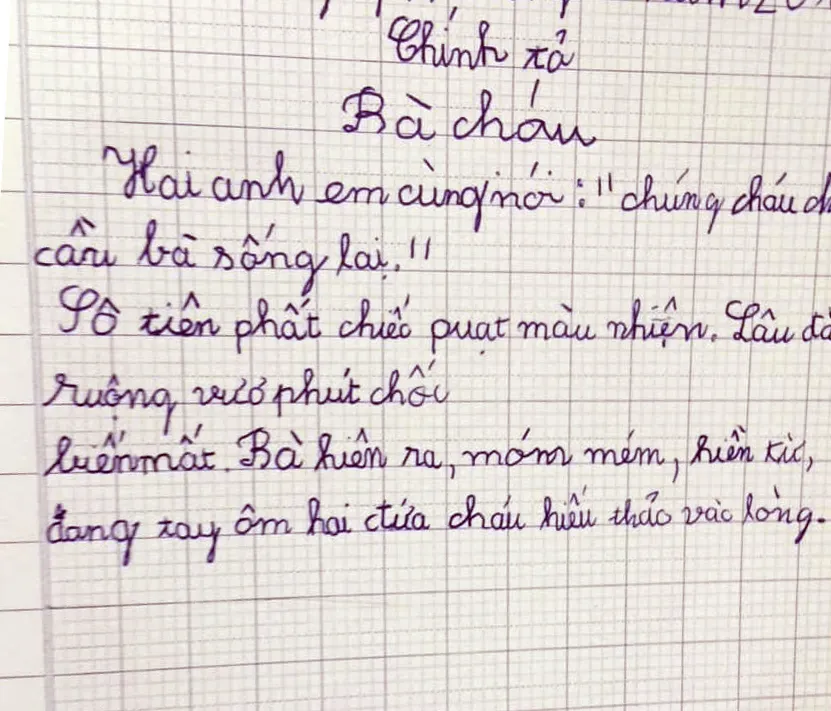 Chính tả
Bà cháu
Hai anh em cùng nói: "chúng cháu
cầu bà sống lại."
Cô tiên phất chiếc quạt màu nhiệm. Lâu
ruộng vườ phút chốc
biến mất. Bà hiện ra, móm mém, hiền từ,
dang tay ôm hai đứa cháu hiếu thảo vào lòng.